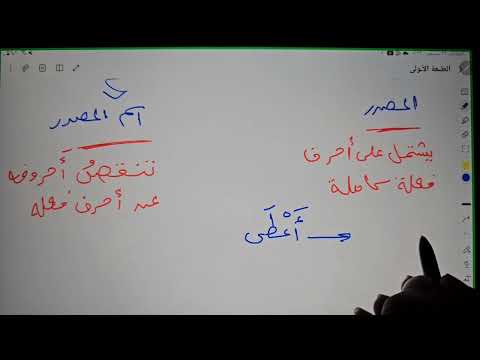 الصفحة الأولى
المصدر
يشتمل على أحرف
فعله كاملة
اسم المصدر
تنقص أحروفه
عن أحرف فعله
أَعْطَى